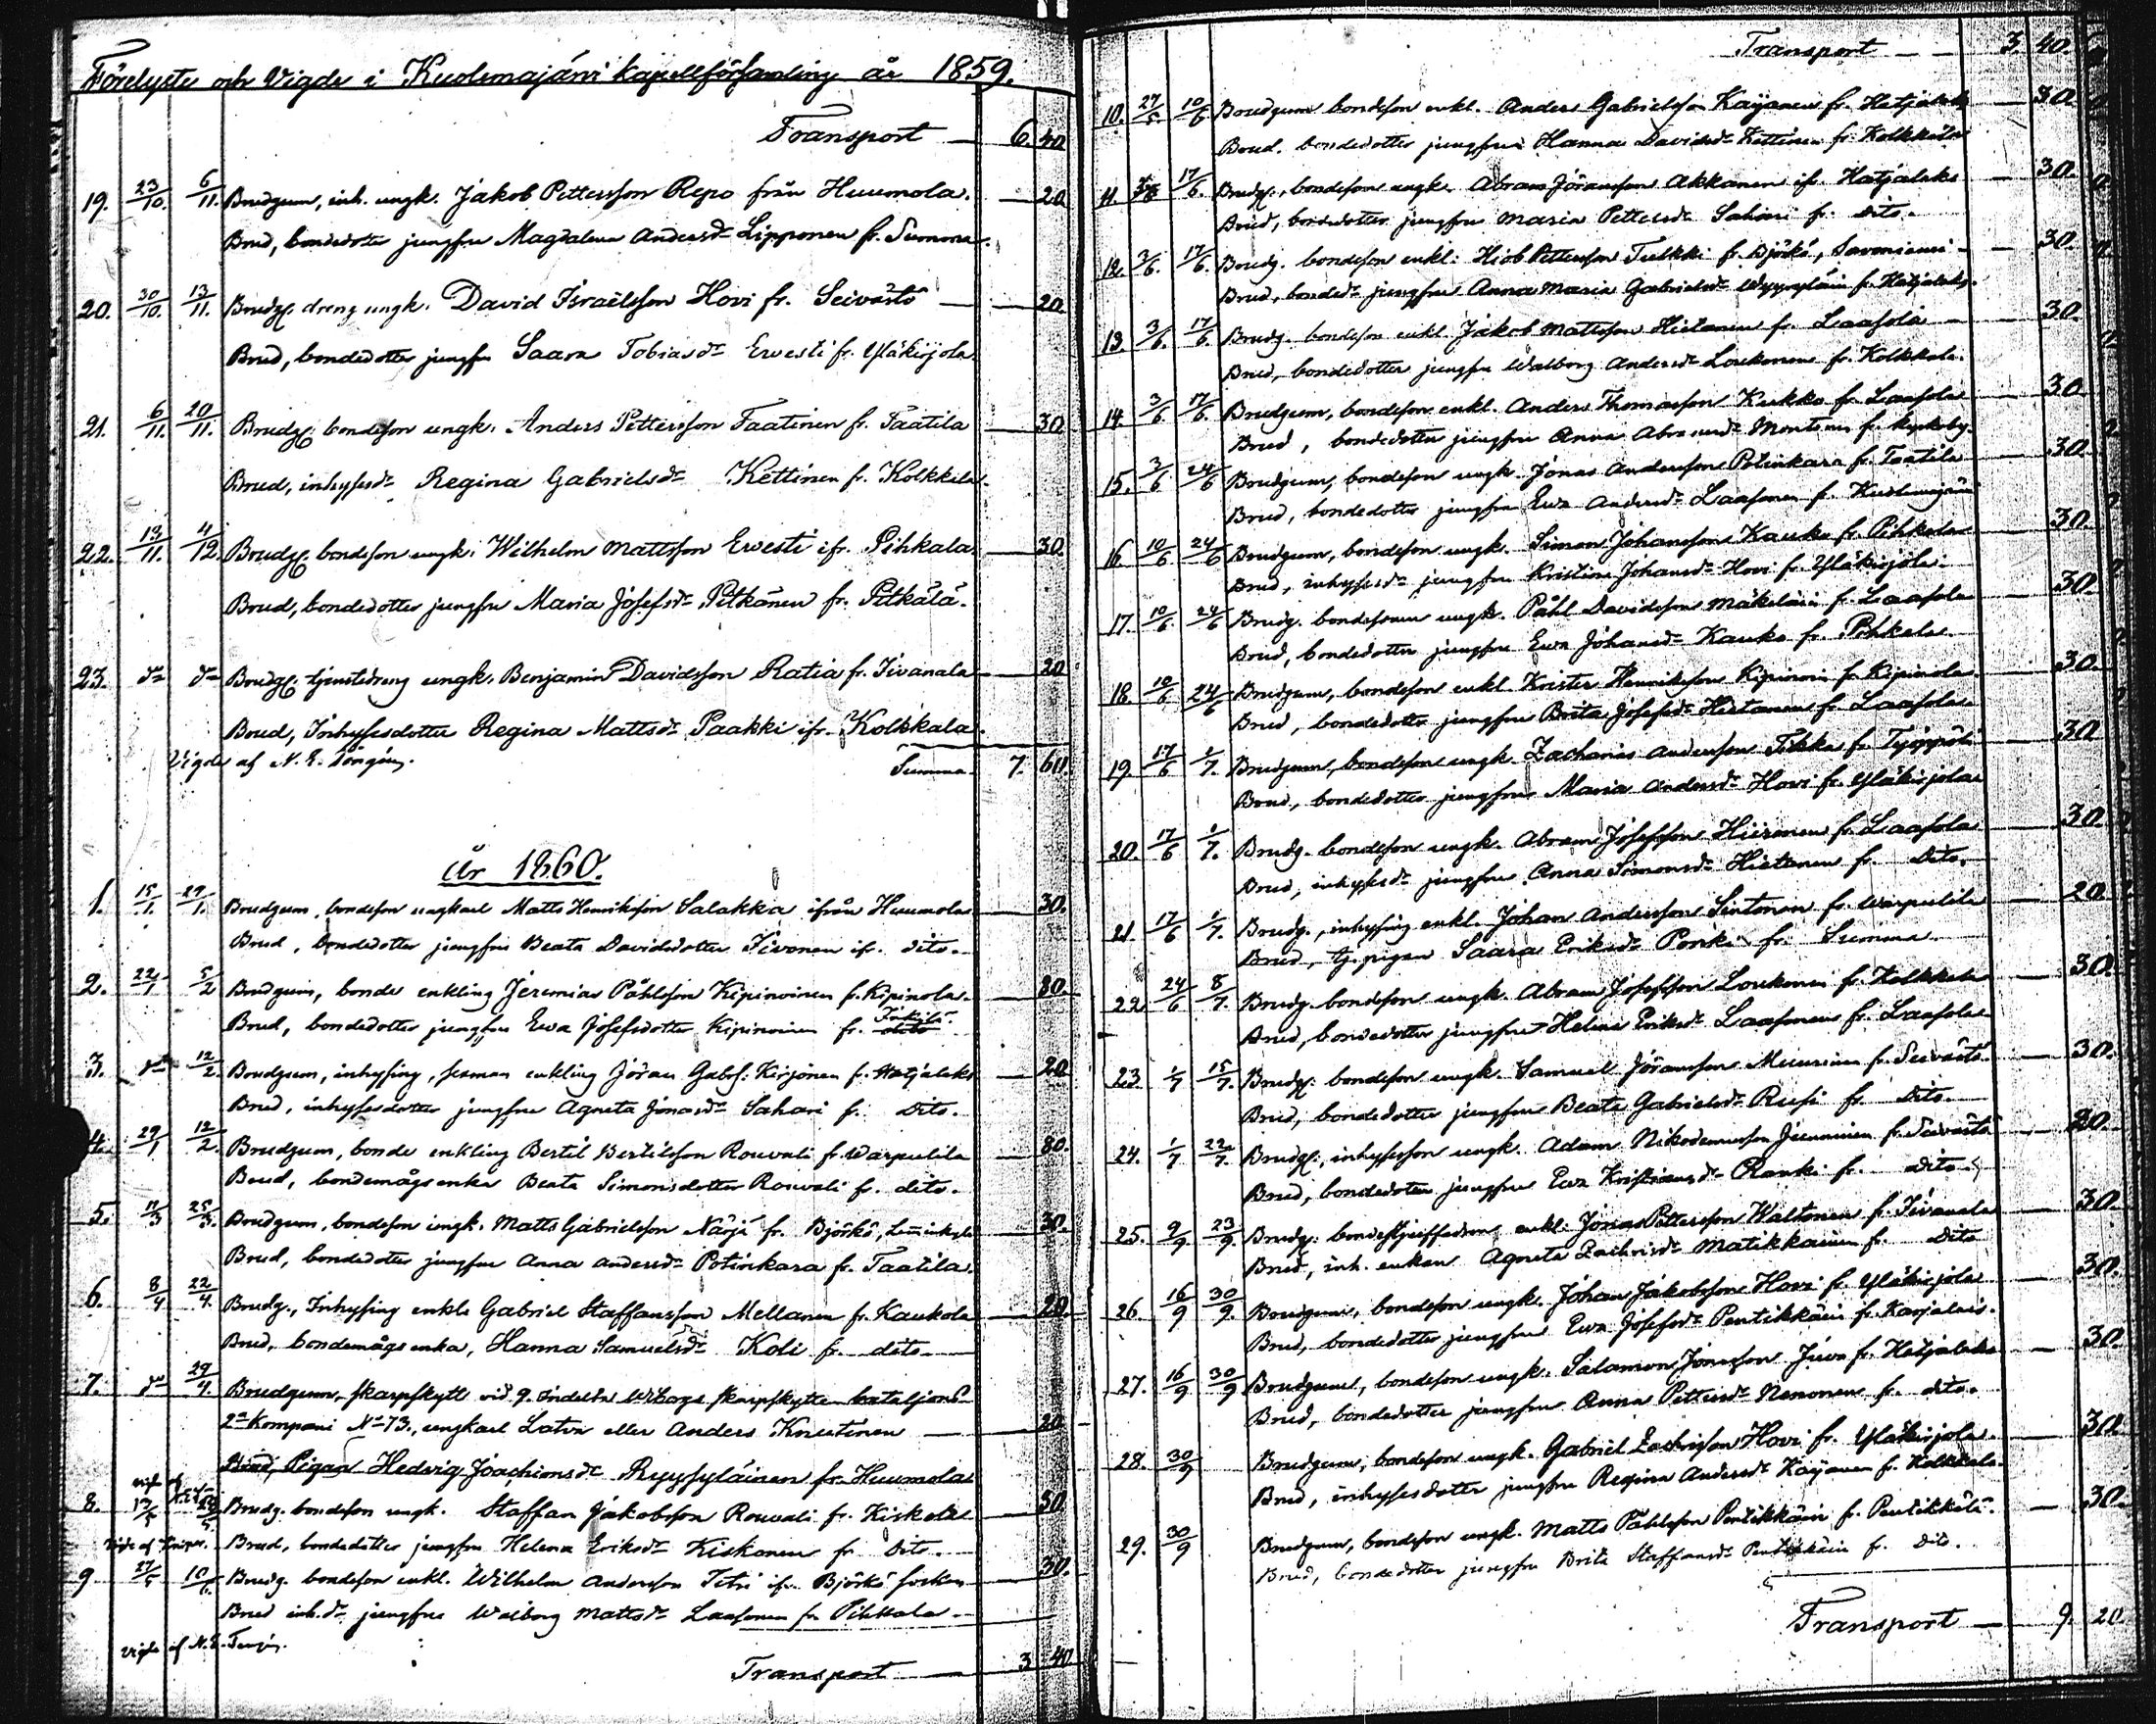 Förelyste och Vigde i Kuolemajärvi kapellförsamling år 1859.
Transport — 6. 40
19. 23/10. 6/11. Brudgum, inh. ungk. Jakob Pettersson Repo från Huumola. — 20
Brud, bondedotter jungfru Magdalena Andersdr Lipponen fr. Summa.
20. 30/10. 13/11. Brudg. dreng ungk. David Israelsson Hovi fr. Seivästö — 20.
Brud, bondedotter jungfr Saara Tobiasdr Ewesti fr. Yläkirjola
21. 6/11. 20/11. Brudg. bondeson ungk. Anders Pettersson Taatinen fr. Taatila — 30
Brud, inhysesdr Regina Gabrielsdr Kettinen fr. Kolkkala.
22. 13/11. 4/12. Brudg. bondeson ungk. Wilhelm Mattsson Ewesti ifr. Pihkala — 30.
Brud, bondedotter jungfru Maria Josefsdr Pitkänen fr. Pitkälä.
23. dr dr Brudg. tjenstedreng ungk. Benjamin Davidsson Ratia fr. Iivanala — 20
Brud, Inhysesdotter Regina Mattsdr Paakki ifr. Kolkkala.
Vigde af N. E.
Summa. 7. 60.
År 1860.
1. 15/1. 29/1. Brudgum, bondeson ungkarl Matts Henriksson Salakka ifrån Huumola — 30.
Brud, bondedotter jungfru Beata Davidsdotter Iivonen ifr. dito.
2. 22/1 5/2 Brudgum, bonde enkling Jeremias Påhlsson Kipinoinen fr. Kipinola — 80.
Brud, bondedotter jungfru Ewa Josefsdotter Kipinoinen fr. dito
3. dr 12/2. Brudgum, inhysing, sexman enkling Jöran Gabrs. Kirjonen fr. Hatjalaks — 20
Brud, inhysesdotter jungfru Agneta Jonasdr Sahari fr. Dito.
4. 29/1 12/2. Brudgum, bonde enkling Bertil Bertilsson Rouvali fr. Warpulila — 80.
Brud, bondemågs enka Beata Simonsdotter Rouvali fr. dito.
5. 11/3 25/3. Brudgum, bondeson ungk. Matts Gabrielsson Närjä fr. Björkö, — 30.
Brud, bondedotter jungfru Anna Andersdr Potinkara fr. Taatila.
6. 8/4 22/4. Brudg., Inhysing enkl. Gabriel Staffansson Mellanen fr. Kaukola — 20
Brud, bondemågs enka, Hanna Samuelsdr Koli fr. dito
7. dr 29/4. Brudgum, skarpskytt vid 9. Indelta Wiborgs skarpskytte bataljons
2a Kompani No 73., ungkarl Latva eller Anders Knutinen — 20
Brud, Pigan Hedvig Joachimsdr Ryypyläinen fr. Huumola
8. Brudg. bondeson ungk. Staffan Jakobsson Rouvali fr. Kiskola — 30.
Brud, bondedotter jungfru Helena Eriksdr Kiskonen fr. Dito.
9 27/5 10/6. Brudg. bondeson enkl. Wilhelm Andersson Tetri ifr. Björkö socken — 30.
Brud inh.dr jungfru Walborg Mattsdr Laasonen fr. Pihkala
Vigde af N. E.
Transport — 3 40
Transport — 3. 40.
10. 27/5. 10/6 Brudgum bondeson enkl. Anders Gabrielsson Kayanen fr. Hatjalaks — 30.
Brud. bondedotter jungfru Hanna Davidsdr Kettinen fr. Kolkkala
11. 17/6. Brudg., bondeson ungk. Abram Jöransson Akkanen ifr. Hatjalaks — 30.
Brud, bondedotter jungfru Maria Pettersdr Sahari fr. dito.
12. 3/6. 17/6. Brudg. bondeson enkl. Hiob Pettersson Tulkki fr. Björkö, — 30.
Brud, bondedr jungfru Anna Maria Gabrielsdr fr. Hatjalaks.
13. 3/6. 17/6. Brudg. bondeson enkl. Jakob Mattsson Hietanen fr. Laasola — 30.
Brud, bondedotter jungfru Walborg Andersdr Loukonen fr. Kolkkala.
14. 3/6 17/6. Brudgum, bondeson enkl. Anders Thomasson Kukko fr. Laasola — 30.
Brud, bondedotter jungfru Anna Abramsdr Montonen fr.
15. 3/6 24/6 Brudgum, bondeson ungk. Jonas Andersson Potinkara fr. Taatila — 30.
Brud, bondedotter jungfru Ewa Andersdr Laasonen fr. Kuolemajärvi
16. 10/6 24/6 Brudgum, bondeson ungk. Simon Johansson Kauko fr. Pihkala — 30.
Brud, inhysesdr jungfru Kristina Johansdr Hovi fr. Yläkirjola.
17. 10/6. 24/6 Brudg. bondesonen ungk. Påhl Davidsson Mäkeläin fr. Laasola — 30.
Brud, bondedotter jungfru Ewa Johansdr Kauko fr. Pihkala.
18. 10/6 24/6 Brudgum, bondeson enkl. Krister Henriksson Kipinoin fr. Kipinola — 30.
Brud, bondedotter jungfru Brita Josefsdr Hietanen fr. Laasola
19. 17/6 1/7. Brudgum, bondeson ungk. Zacharias Andersson Tikka fr. Työppölä — 30
Brud, bondedotter jungfru Maria Andersdr Hovi fr. Yläkirjola
20. 17/6 1/7. Brudg. bondeson ungk. Abram Josefsson Hiironen fr. Laasola — 30.
Brud, inhysesdr jungfru Anna Simonsdr Hietanen fr. Dito.
21. 17/6 1/7. Brudg., inhysing enkl. Johan Andersson Sintonen fr. Warpulila — 20.
Brud, tj. pigan Saara Eriksdr Ponki fr. Summa
22. 24/6 8/7. Brudg. bondeson ungk. Abram Josefsson Loukonen fr. Kolkkala — 30.
Brud, bondedotter jungfru Helena Eriksdr Laasonen fr. Laasola
23. 1/7 15/7. Brudg. bondeson ungk. Samuel Jöransson Muurinen fr. Seivästö — 30.
Brud, bondedotter jungfru Beata Gabrielsdr Rusi fr. Dito.
24. 1/7 22/7. Brudg., inhysesson ungk. Adam Nikodemusson Junninen fr. Seivästö — 20.
Brud, bondedotter jungfru Ewa Kristiansdr Ranki fr. dito.
25. 9/9. 23/9. Brudg. enkl. Jonas Pettersson Waltonen fr. Iivanala — 30.
Brud, inh. enkan Agneta Zachrisdr Matikkainen fr. Dito
26. 16/9 30/9. Brudgum, bondeson ungk. Johan Jakobsson Hovi fr. Yläkirjola — 30.
Brud, bondedotter jungfru Ewa Josefsdr Pentikkäin fr. Karjalais.
27. 16/9 30/9 Brudgum, bondeson ungk. Salamon Jonasson Juva fr. Hatjalaks — 30.
Brud, bondedotter jungfru Anna Pettersdr Nenonen fr. dito.
28. 30/9 Brudgum, bondeson ungk. Gabriel Zachrisson Hovi fr. Yläkirjola. — 30
Brud, inhysesdotter jungfru Regina Andersdr Kayanen fr. Kolkkala.
29. 30/9 Brudgum, bondeson ungk. Matts Påhlsson Pentikkäin fr. Pentikkälä. — 30.
Brud, bondedotter jungfru Brita Staffansdr Pentikkäin fr. Dito.
Transport — 9. 20.